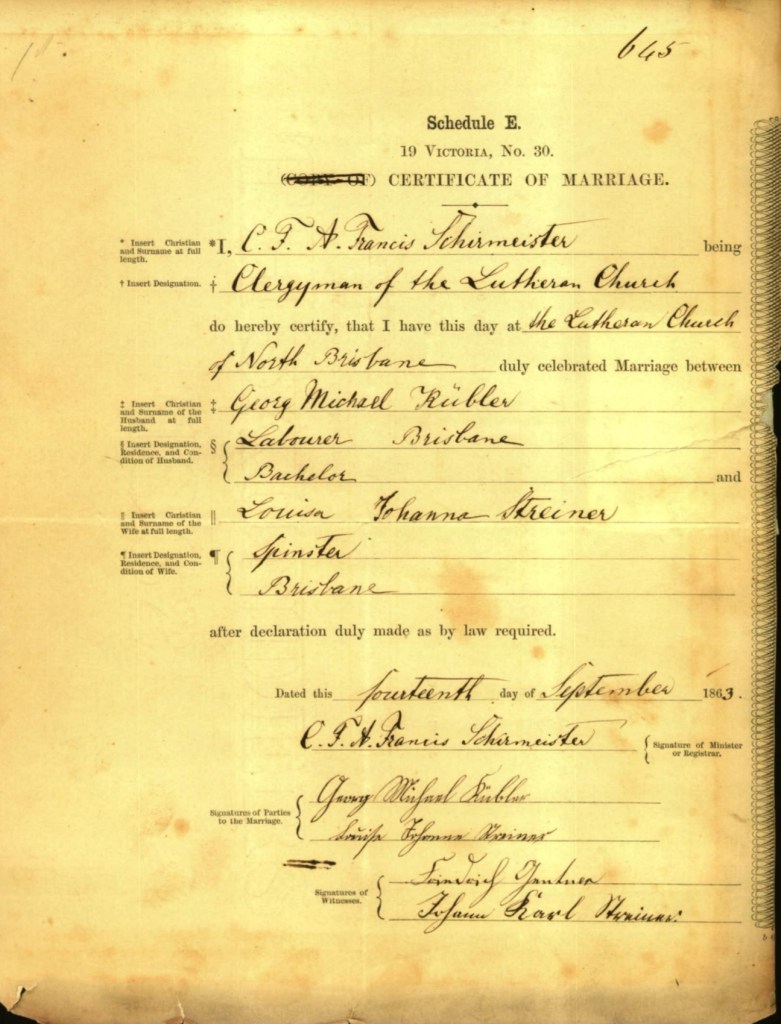 645
Schedule E.
19 VICTORIA, No. 30.
(COPY OF) CERTIFICATE OF MARRIAGE.
* Insert Christian and Surname at full length.
*I, C. F. A. Francis Schirmeister being
† Insert Designation.
† Clergyman of the Lutheran Church
do hereby certify, that I have this day at the Lutheran Church
of North Brisbane duly celebrated Marriage between
‡ Insert Christian and Surname of the Husband at full length.
‡ Georg Michael Kübler
§ Insert Designation, Residence, and Condition of Husband.
§ Labourer Brisbane
Bachelor and
|| Insert Christian and Surname of the Wife at full length.
|| Louisa Johanna Streiner
¶ Insert Designation, Residence, and Condition of Wife.
¶ Spinster
Brisbane
after declaration duly made as by law required.
Dated this fourteenth day of September 1863.
C. F. A. Francis Schirmeister Signature of Minister or Registrar.
Signatures of Parties to the Marriage.
Georg Michael Kübler
Louise Johanne Streiner
Signatures of Witnesses.
Friedrich Gentner
Johann Karl Streiner.